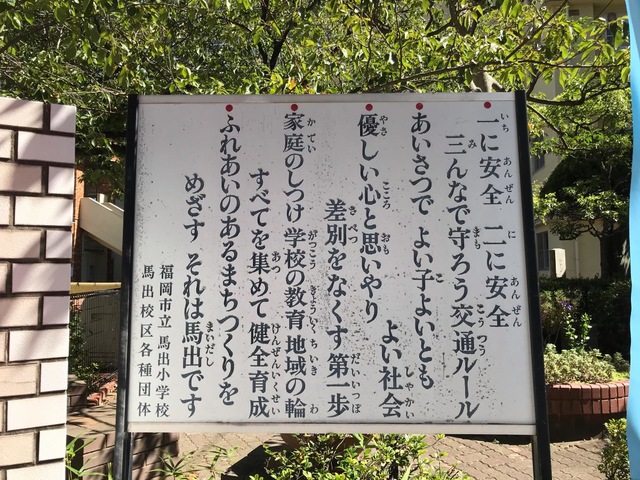 一に安全 二に安全
三んなで守ろう交通ルール
あいさつで よい子よいとも
よい社会
優しい心と思いやり
差別をなくす 第一歩
家庭のしつけ 学校の教育 地域の輪
すべてを集めて 健全育成
ふれあいのあるまちづくりを
めざす それは馬出です
福岡市立 馬出小学校
馬出校区各種団体